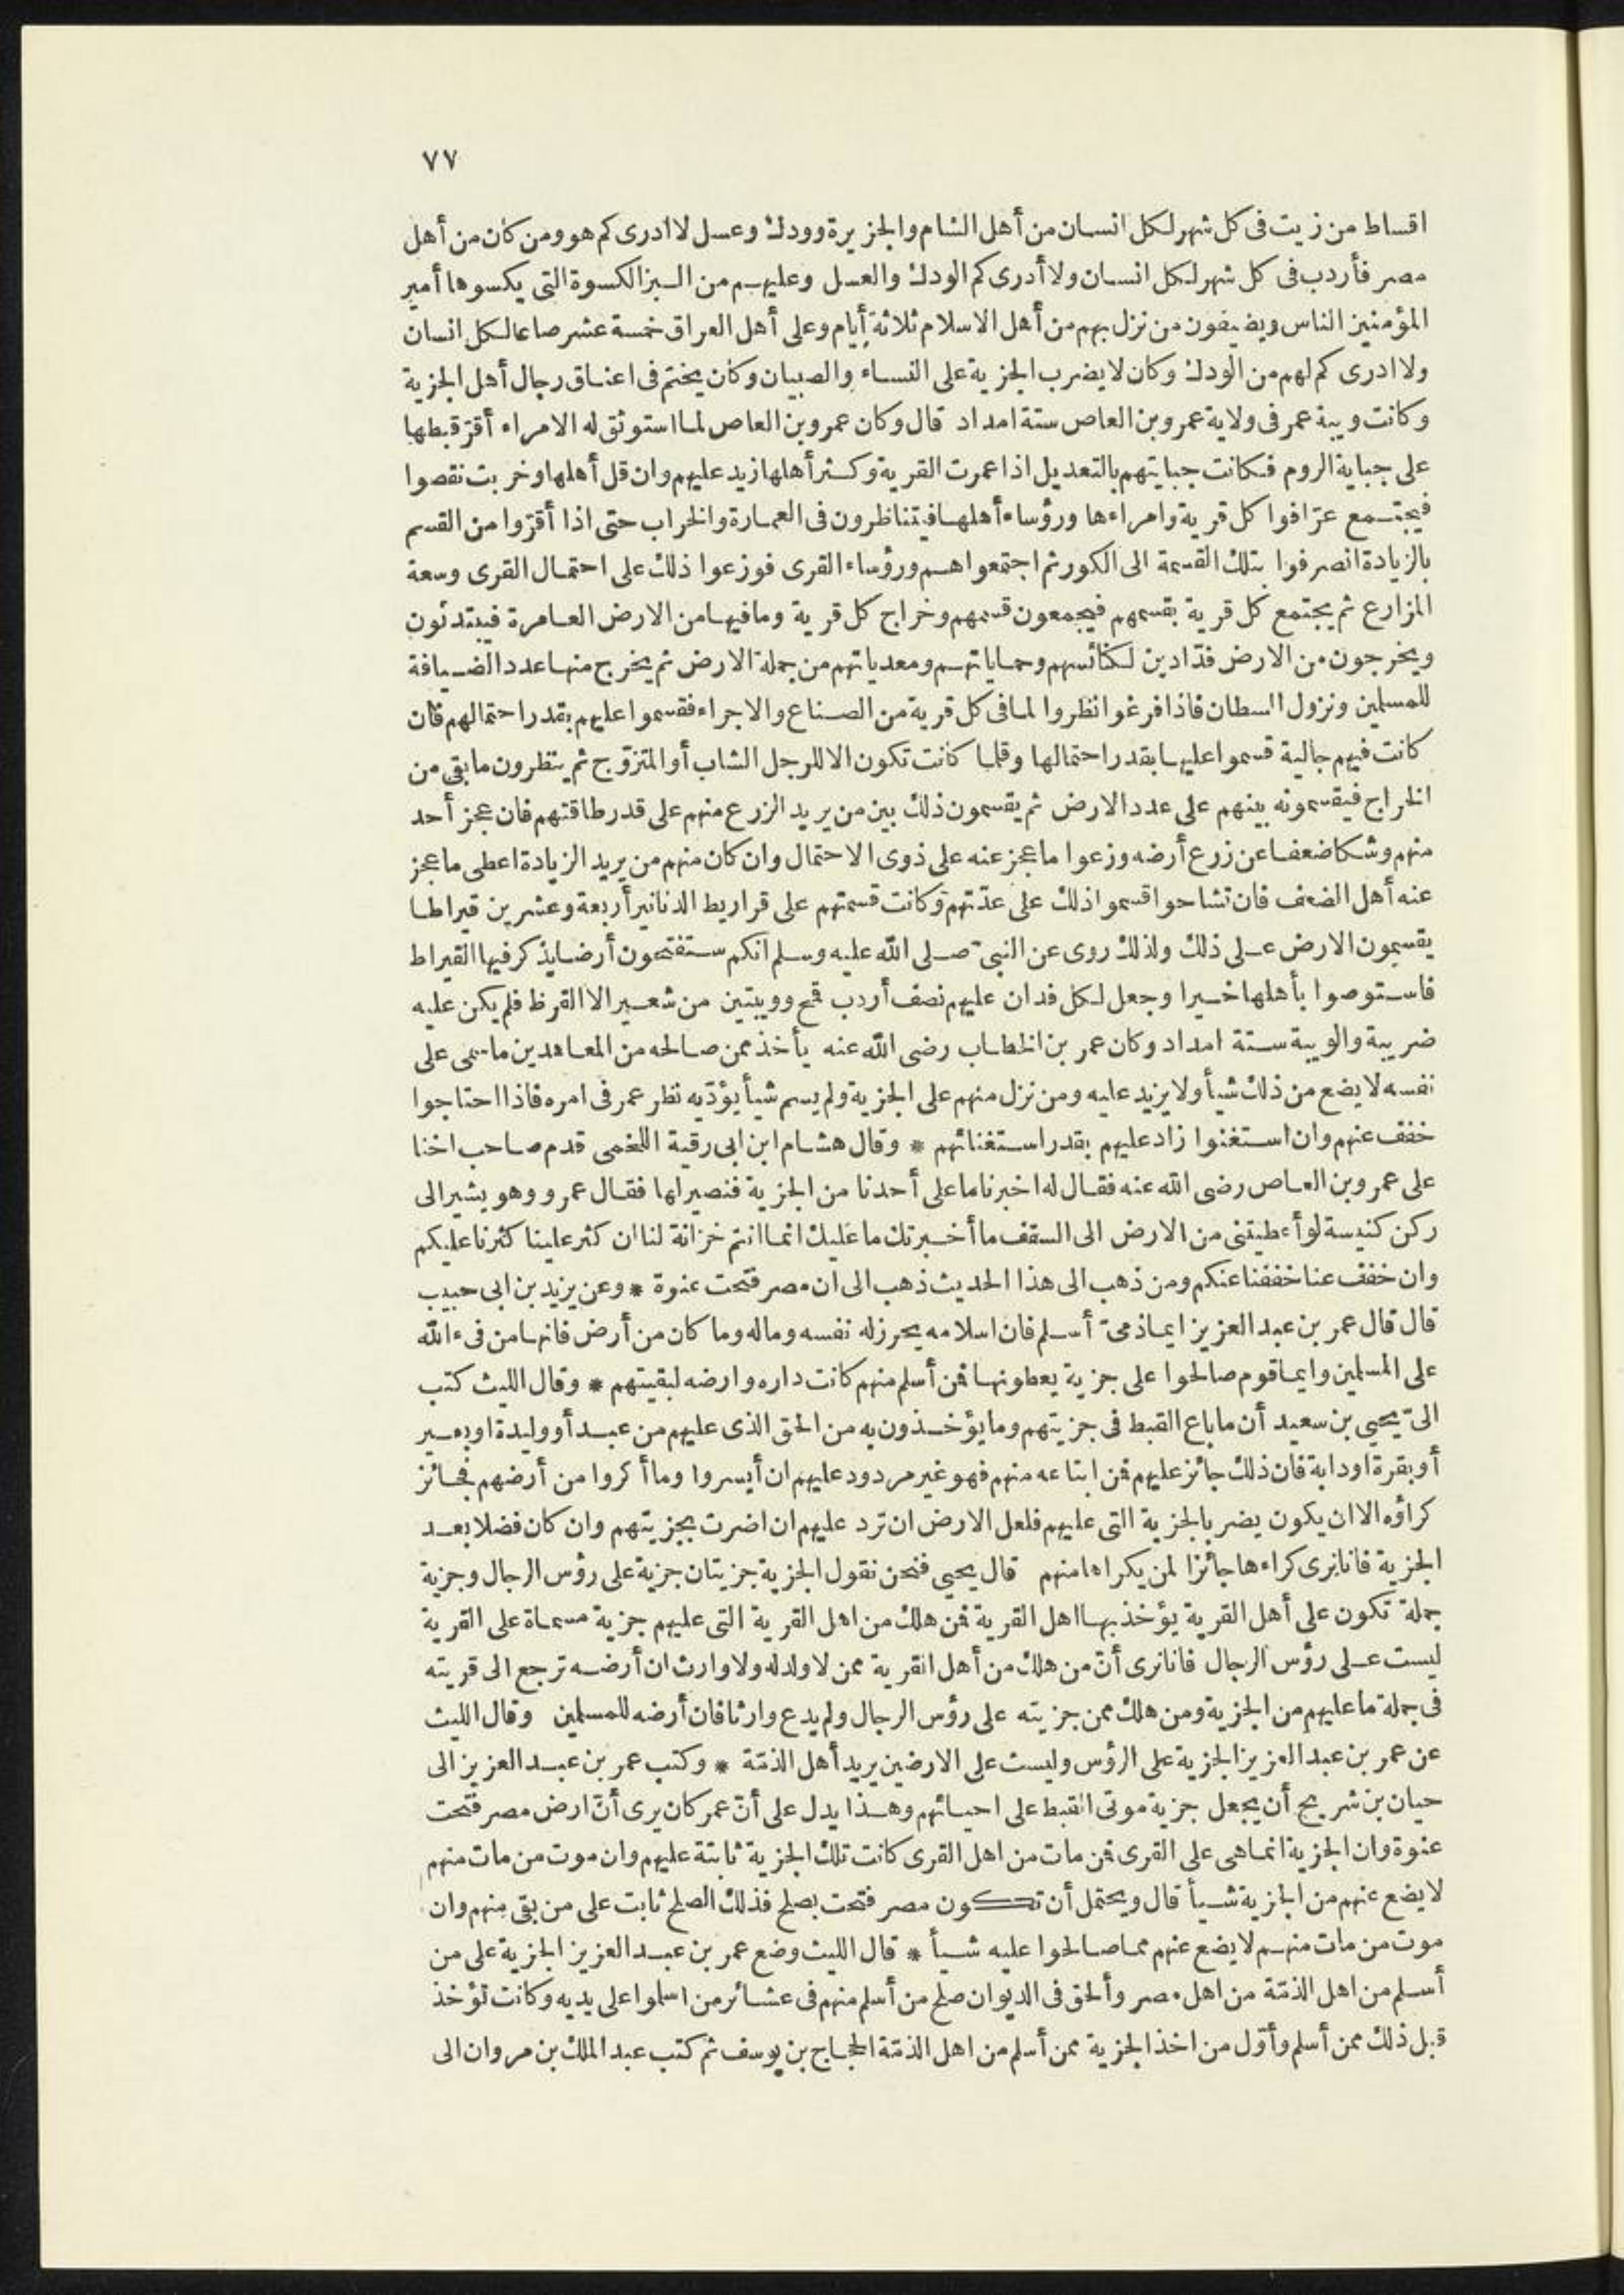 ٧٧
اقساط من زيت فى كل شهر لكل انسان من أهل الشام والجزيرة وودك وعسل لا ادرى كم هو ومن كان من أهل
مصر فأردب فى كل شهر لكل انسان ولا أدرى كم الودك والعسل وعليهم من البز الكسوة التى يكسوها أمير
المؤمنين الناس ويضيفون من نزل بهم من أهل الاسلام ثلاثة أيام وعلى أهل العراق خمسة عشر صاعا لكل انسان
ولا ادرى كم لهم من الودك وكان لا يضرب الجزية على النساء والصبيان وكان يختم فى اعناق رجال أهل الجزية
وكانت ويبة عمر فى ولاية عمرو بن العاص ستة امداد قال وكان عمرو بن العاص لما استوثق له الامراء أقرّ قبطها
على جباية الروم فكانت جبايتهم بالتعديل اذا عمرت القرية وكثر أهلها زيد عليهم وان قل أهلها وخربت نقصوا
فيجتمع عرّافوا كل قرية وامراءها ورؤساء أهلها فيتناظرون فى العمارة والخراب حتى اذا أقرّوا من القسم
بالزيادة انصرفوا بتلك القسمة الى الكور ثم اجتمعوا هم ورؤساء القرى فوزعوا ذلك على احتمال القرى وسعة
المزارع ثم يجتمع كل قرية بقسمهم فيجمعون قسمهم وخراج كل قرية وما فيها من الارض العامرة فيبتدئون
ويخرجون من الارض فدّادين لكنائسهم وحماياتهم ومعدياتهم من جملة الارض ثم يخرج منها عدد الضيافة
للمسلمين ونزول السطان فاذا فرغوا نظروا لما فى كل قرية من الصناع والاجراء فقسموا عليهم بقدر احتمالهم فان
كانت فيهم جالية قسموا عليها بقدر احتمالها وقلما كانت تكون الا للرجل الشاب أو المتزوّج ثم ينظرون ما بقى من
الخراج فيقسمونه بينهم على عدد الارض ثم يقسمون ذلك بين من يريد الزرع منهم على قدر طاقتهم فان عجز أحد
منهم وشكا ضعفا عن زرع أرضه وزعوا ما عجز عنه على ذوى الاحتمال وان كان منهم من يريد الزيادة اعطى ما عجز
عنه أهل الضعف فان تشاحوا قسموا ذلك على عدّتهم وكانت قسمتهم على قراريط الدنانير أربعة وعشرين قيراطا
يقسمون الارض على ذلك ولذلك روى عن النبىّ صلى الله عليه وسلم انكم ستفتحون أرضا يذكر فيها القيراط
فاستوصوا بأهلها خيرا وجعل لكل فدان عليهم نصف أردب قمح وويبتين من شعير الا القرظ فلم يكن عليه
ضريبة والويبة ستة امداد وكان عمر بن الخطاب رضى الله عنه يأخذ ممن صالحه من المعاهدين ما سمى على
نفسه لا يضع من ذلك شيأ ولا يزيد عليه ومن نزل منهم على الجزية ولم يسم شيأ يؤدّيه نظر عمر فى امره فاذا احتاجوا
خفف عنهم وان استغنوا زاد عليهم بقدر استغنائهم * وقال هشام ابن ابى رقية اللخمى قدم صاحب اخنا
على عمرو بن العاص رضى الله عنه فقال له اخبرنا ما على أحدنا من الجزية فنصير لها فقال عمرو وهو يشير الى
ركن كنيسة لو أعطيتنى من الارض الى السقف ما أخبرتك ما عليك انما انتم خزانة لنا ان كثر علينا كثرنا عليكم
وان خفف عنا خففنا عنكم ومن ذهب الى هذا الحديث ذهب الى ان مصر فتحت عنوة * وعن يزيد بن ابى حبيب
قال قال عمر بن عبد العزيز ايما ذمىّ أسلم فان اسلامه يحرز له نفسه وماله وما كان من أرض فانها من فىء الله
على المسلمين وايما قوم صالحوا على جزية يعطونها فمن أسلم منهم كانت داره وارضه لبقيتهم * وقال الليث كتب
الىّ يحيى بن سعيد أن ما باع القبط فى جزيتهم وما يؤخذون به من الحق الذى عليهم من عبد أو وليدة او بعير
أو بقرة او دابة فان ذلك جائز عليهم فمن ابتاعه منهم فهو غير مردود عليهم ان أيسروا وما أكروا من أرضهم فجائز
كراؤه الا ان يكون يضر بالجزية التى عليهم فلعل الارض ان ترد عليهم ان اضرت بجزيتهم وان كان فضلا بعد
الجزية فانا نرى كراءها جائزا لمن يكراها منهم قال يحيى فنحن نقول الجزية جزيتان جزية على رؤس الرجال وجزية
جملة تكون على أهل القرية يؤخذ بها اهل القرية فمن هلك من اهل القرية التى عليهم جزية مسماة على القرية
ليست على رؤس الرجال فانا نرى أنّ من هلك من أهل القرية ممن لا ولد له ولا وارث ان أرضه ترجع الى قريته
فى جملة ما عليهم من الجزية ومن هلك ممن جزيته على رؤس الرجال ولم يدع وارثا فان أرضه للمسلمين وقال الليث
عن عمر بن عبد العزيز الجزية على الرؤس وليست على الارضين يريد أهل الذمّة * وكتب عمر بن عبد العزيز الى
حيان بن شريح أن يجعل جزية موتى القبط على احيائهم وهذا يدل على أنّ عمر كان يرى أنّ ارض مصر فتحت
عنوة وان الجزية انما هى على القرى فمن مات من اهل القرى كانت تلك الجزية ثابتة عليهم وان موت من مات منهم
لا يضع عنهم من الجزية شيأ قال ويحتمل أن تكون مصر فتحت بصلح فذلك الصلح ثابت على من بقى منهم وان
موت من مات منهم لا يضع عنهم مما صالحوا عليه شيأ * قال الليث وضع عمر بن عبد العزيز الجزية على من
أسلم من اهل الذمّة من اهل مصر وألحق فى الديوان صلح من أسلم منهم فى عشائر من اسلموا على يديه وكانت تؤخذ
قبل ذلك ممن أسلم وأوّل من اخذ الجزية ممن أسلم من اهل الذمّة الحجاج بن يوسف ثم كتب عبد الملك بن مروان الى